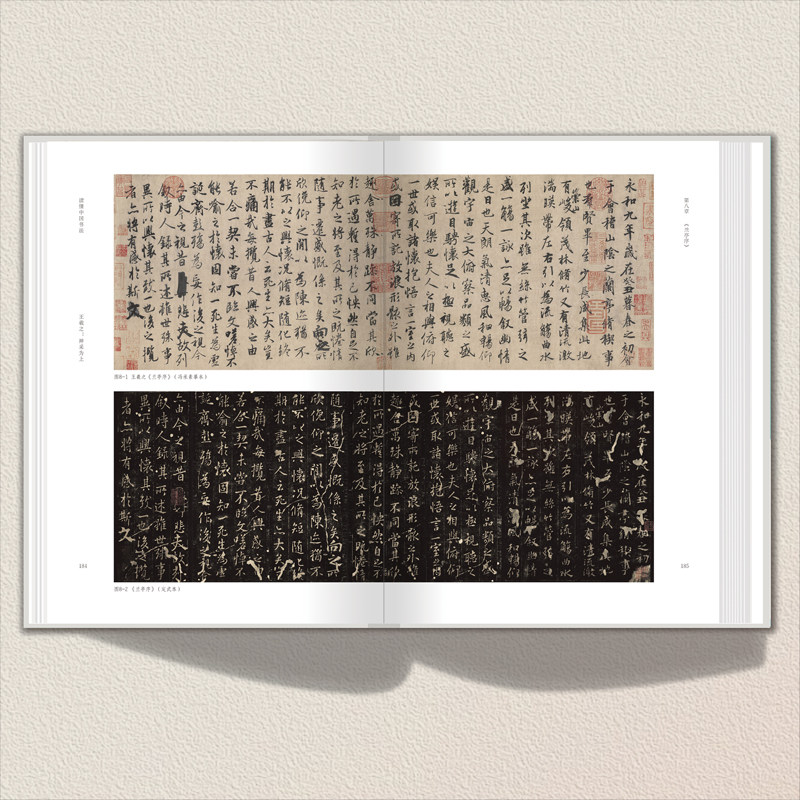 读懂中国书法
王羲之：神采为上
第八章 《兰亭序》
永和九年歲在癸丑暮春之初會
于會稽山陰之蘭亭脩稧事
也羣賢畢至少長咸集此地
有崇山峻領茂林脩竹又有清流激
湍暎帶左右引以為流觴曲水
列坐其次雖無絲竹管弦之
盛一觴一詠亦足以暢敘幽情
是日也天朗氣清惠風和暢仰
觀宇宙之大俯察品類之盛
所以遊目騁懷足以極視聽之
娛信可樂也夫人之相與俯仰
一世或取諸懷抱悟言一室之內
或因寄所託放浪形骸之外雖
趣舍萬殊靜躁不同當其欣
於所遇暫得於己怏然自足不
知老之將至及其所之既惓情
隨事遷感慨係之矣向之所
欣俛仰之閒以為陳迹猶不
能不以之興懷況脩短隨化終
期於盡古人云死生亦大矣豈
不痛哉每攬昔人興感之由
若合一契未嘗不臨文嗟悼不
能喻之於懷固知一死生為虛
誕齊彭殤為妄作後之視今
亦由今之視昔悲夫故列
敘時人錄其所述雖世殊事
異所以興懷其致一也後之攬
者亦將有感於斯文
图8-1 王羲之《兰亭序》（冯承素摹本）
永和九年歲在癸丑暮春之初
于會稽山陰之蘭亭脩稧事
也羣賢畢至少長咸集此
領茂林脩竹又有清流激
湍暎帶左右引以為流觴曲水
列坐其次雖無絲竹管弦
盛一觴一詠亦足以暢敘
是日也天朗氣清惠風和暢仰
觀宇宙之大俯察品類之盛
所以遊目騁懷足以極視聽之
娛信可樂也夫人之相與俯仰
一世或取諸懷抱悟言一室之內
或因寄所託放浪形骸之外雖
趣舍萬殊靜躁不同當其欣
於所遇暫得於己怏然自足不
知老之將至及其所之既惓情
隨事遷感慨係之矣向之所
欣俛仰之閒以為陳迹猶不
能不以之興懷況脩短隨化終
期於盡古人云死生亦大矣豈
不痛哉每攬昔人興感之由
若合一契未嘗不臨文嗟悼不
能喻之於懷固知一死生為虛
誕齊彭殤為妄作後之視今
亦由今之視昔悲夫故列
敘時人錄其所述雖世殊事
異所以興懷其致一也後之攬
者亦將有感於斯文
图8-2 《兰亭序》（定武本）
184
185